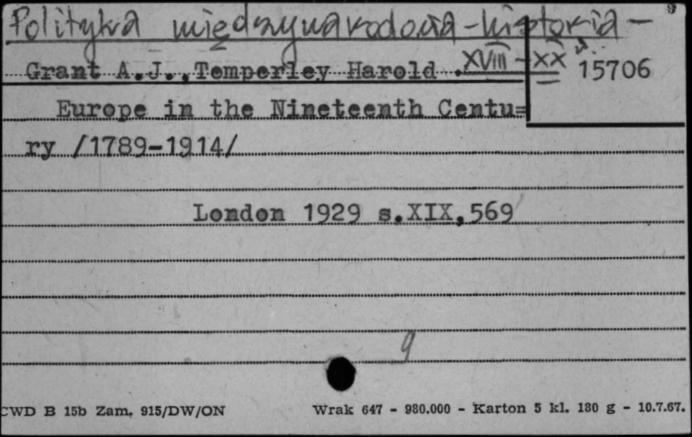 9
Polityka międzynarodowa - historia -
XVIII - XX w.
Grant A.J., Temperley Harold 15706
Europe in the Nineteenth Centu=
ry /1789-1914/
London 1929 s.XIX,569
9
CWD B 15b Zam. 915/DW/ON Wrak 647 - 980.000 - Karton 5 kl. 180 g - 10.7.67.